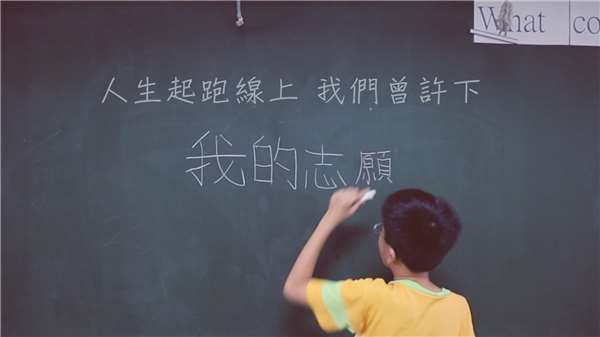 What co
人生起跑線上 我們曾許下
我的志願